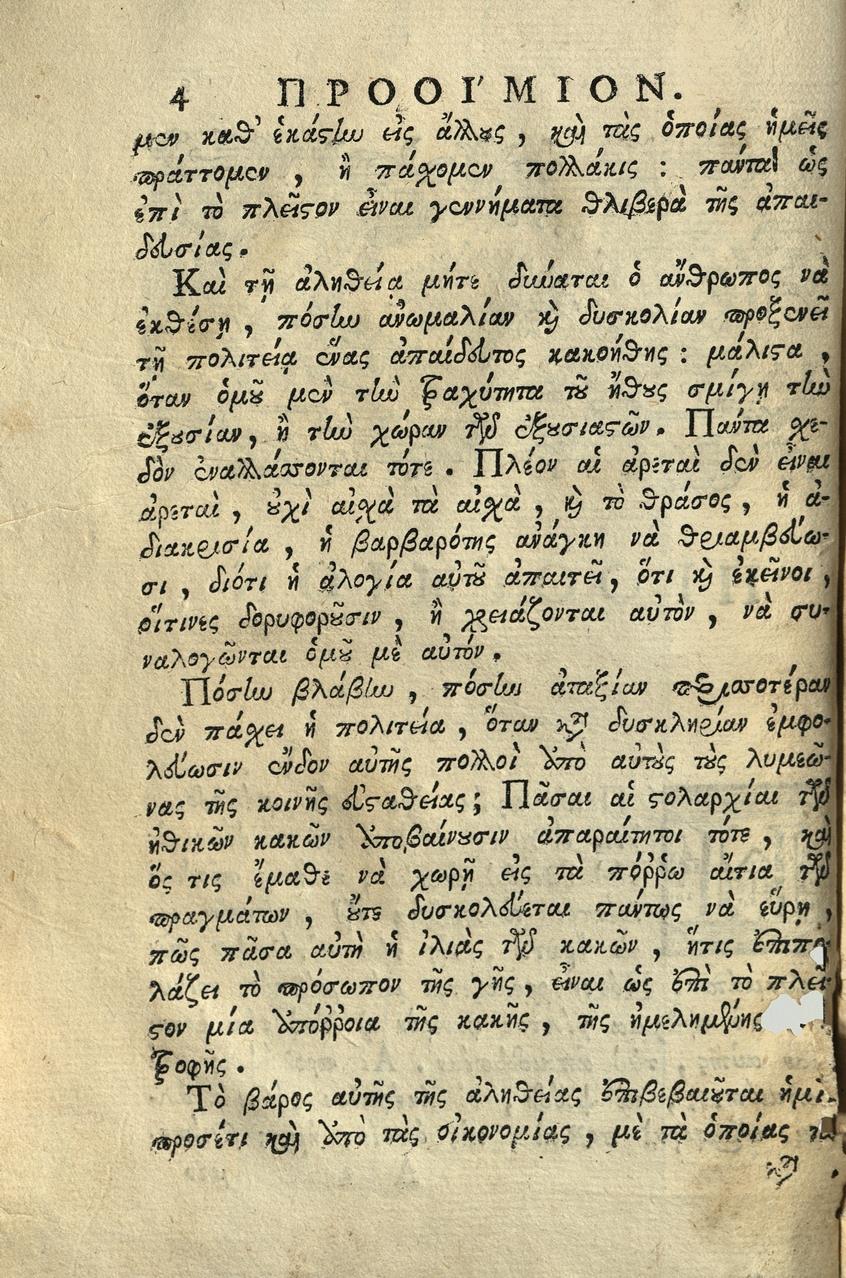 4 ΠΡΟΟΙ΄ΜΙΟΝ.
μεν καθ' ἑκάστην εἰς ἄλλους, καὶ τὰς ὁποίας ἡμεῖς
πράττομεν, ἢ πάχομεν πολλάκις: πάντα ὡς
ἐπὶ τὸ πλεῖστον εἶναι γεννήματα θλιβερὰ τῆς ἀπαι-
δευσίας.
Καὶ τῇ ἀληθείᾳ μήτε δύναται ὁ ἄνθρωπος νὰ
ἐκθέσῃ, πόσην ἀνωμαλίαν καὶ δυσκολίαν προξενεῖ
τῇ πολιτείᾳ ἕνας ἀπαίδευτος κακοήθης: μάλιστα,
ὅταν ὁμοῦ μὲν τὴν τραχύτητα τοῦ ἤθους σμίγῃ τὴν
ἐξουσίαν, ἢ τὴν χώραν τῶν ἐξουσιαστῶν. Πάντα σχε-
δὸν ἐναλλάσσονται τότε. Πλέον αἱ ἀρεταὶ δὲν εἶναι
ἀρεταὶ, οὐχὶ αἰσχρὰ τὰ αἰσχρὰ, καὶ τὸ θράσος, ἡ ἀ-
διακρισία, ἡ βαρβαρότης ἀνάγκη νὰ θριαμβεύω-
σι, διότι ἡ ἀλογία αὐτοῦ ἀπαιτεῖ, ὅτι καὶ ἐκεῖνοι,
οἵτινες δορυφοροῦσιν, ἢ χρειάζονται αὐτὸν, νὰ συ-
ναλογῶνται ὁμοῦ μὲ αὐτόν.
Πόσην βλάβην, πόσην ἀταξίαν περισσοτέραν
δὲν πάσχει ἡ πολιτεία, ὅταν κατὰ δυσκληρίαν ἐμφο-
λεύωσιν ἔνδον αὐτῆς πολλοὶ ἀπὸ αὐτοὺς τοὺς λυμεῶ-
νας τῆς κοινῆς εὐσταθείας; Πᾶσαι αἱ στολαρχίαι τῶν
ἠθικῶν κακῶν ἀποβαίνουσιν ἀπαραίτητοι τότε, καὶ
ὅς τις ἔμαθε νὰ χωρῇ εἰς τὰ πόῤῥω αἴτια τῶν
πραγμάτων, οὔτε δυσκολεύεται παντως νὰ εὕρῃ,
πῶς πᾶσα αὐτὴ ἡ ἰλιὰς τῶν κακῶν, ἥτις ἐπιπο-
λάζει τὸ πρόσωπον τῆς γῆς, εἶναι ὡς ἐπὶ τὸ πλεῖ-
στον μία ἀπόῤῥοια τῆς κακῆς, τῆς ἠμελημένης
τροφῆς.
Τὸ βάρος αὐτῆς τῆς ἀληθείας ἐπιβεβαιοῦται ἡμῖν
προσέτι καὶ ἀπὸ τὰς οἰκονομίας, μὲ τὰ ὁποίας
κατὰ